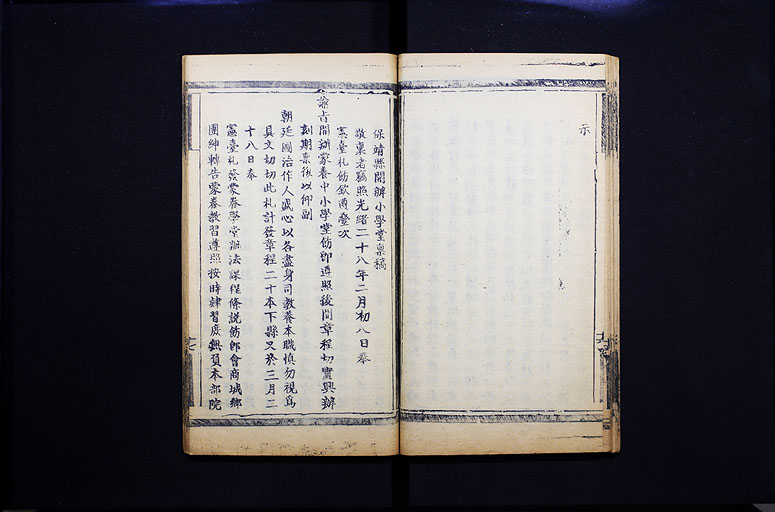 示
保靖縣開辦小學堂稟稿
敬稟者竊照光緒二十八年二月初八日奉
憲臺札飭欽遵疊次
諭旨開辦蒙養中小學堂飭即遵照後開章程切實興辦
刻期稟後以仰副
朝廷圖治作人盛心以各盡身司教養本職慎勿視爲
具文切切此札計發章程二十本下縣又於三月二
十八日奉
憲臺札發蒙養學堂辦法課程條說飭即會商城鄉
團紳轉告蒙養教習遵照按時肄習庶無負本部院